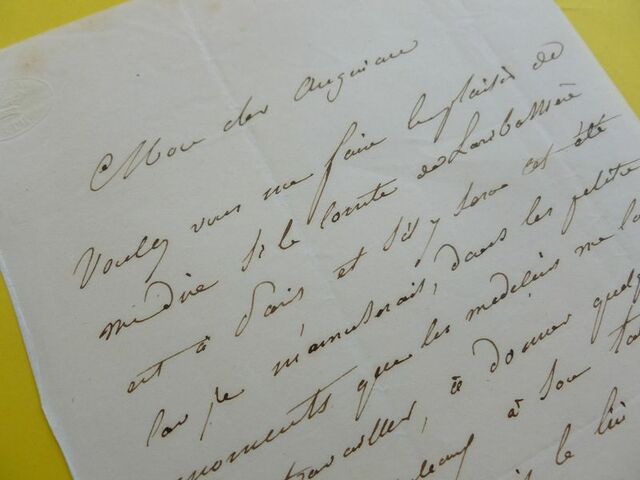 Mon cher
Voulez vous me faire le plaisir de
me dire si le comte de Lariboisière
est à Paris et s'il y sera cet été
car je m'amuserais, dans les petits
moments que les médecins me la
travailler, à donner quelq
à son ta
le lui